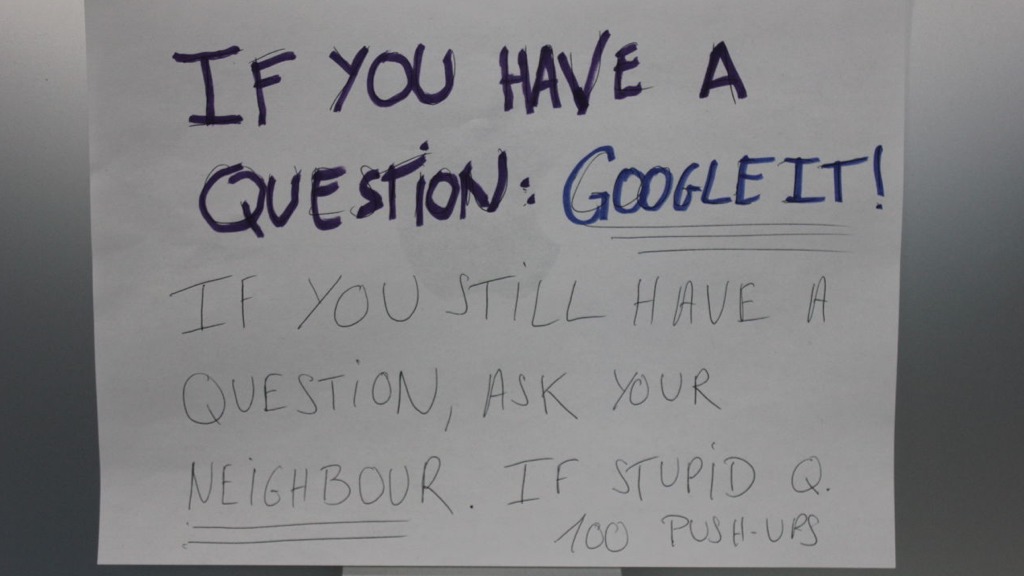 IF YOU HAVE A
QUESTION: GOOGLE IT!
IF YOU STILL HAVE A
QUESTION, ASK YOUR
NEIGHBOUR. IF STUPID Q.
100 PUSH-UPS